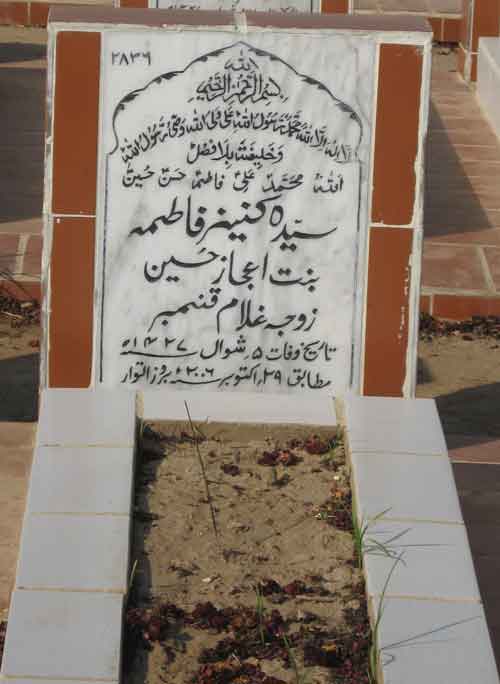 ۲۸۳۶
اللہ
بسم اللہ الرحمٰن الرحیم
لا الہ الا اللہ محمد رسول اللہ علی ولی اللہ وصی رسول اللہ
وخلیفتہ بلا فصل
اللہ محمد علی فاطمہ حسن حسین
سیدہ کنیز فاطمہ
بنت اعجاز حسین
زوجہ غلام قنمبر
تاریخ وفات ۵ شوال ۱۴۲۷ھ
مطابق ۲۹ اکتوبر ۲۰۰۶ء بروز اتوار